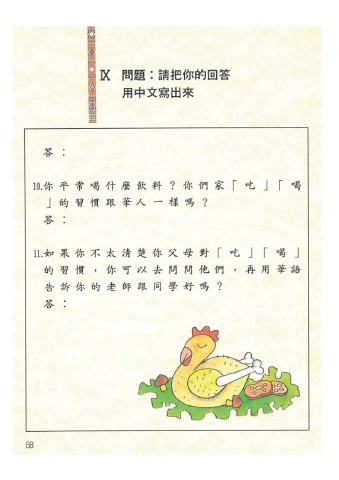 Ⅸ 問題：請把你的回答
用中文寫出來
答：
10.你平常喝什麼飲料？你們家「吃」「喝
」的習慣跟華人一樣嗎？
答：
11.如果你不太清楚你父母對「吃」「喝」
的習慣，你可以去問問他們，再用華語
告訴你的老師跟同學好嗎？
答：
58